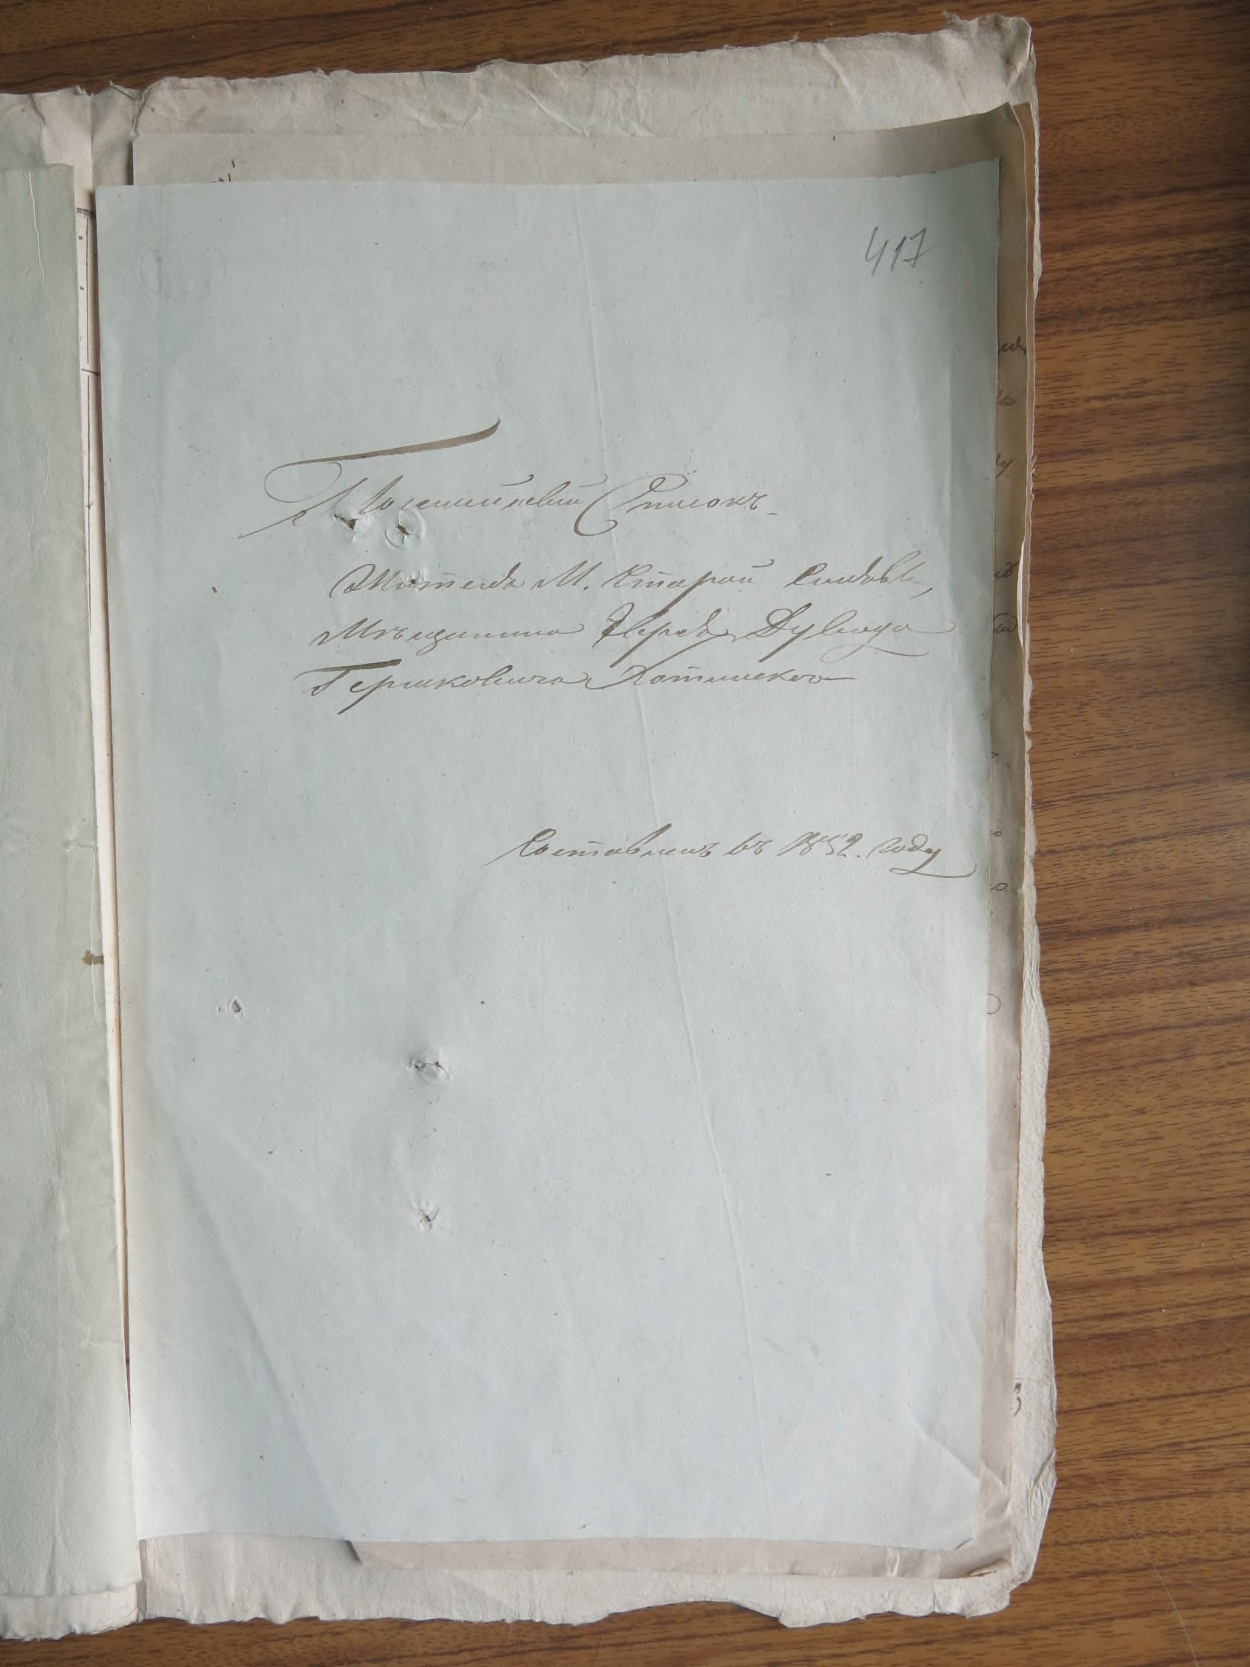 417
Посемейный Списокъ
Жителя М. Старой Синявы,
Мѣщанина Еврея Дувида
Гершковича Хотинского
Составленъ въ 1852. году